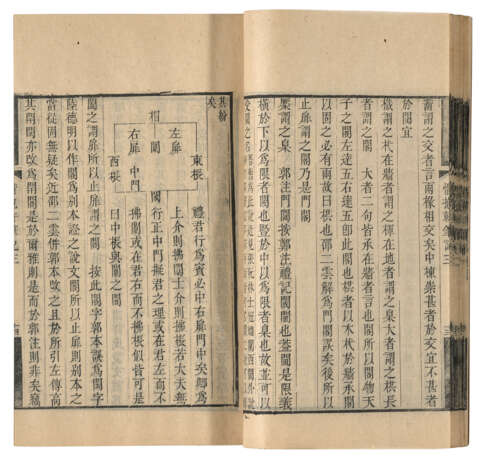 謂之交者言兩椽相交矣中棟崇甚者於交宜不甚者
於閣宜
樴謂之杙在牆者謂之楎在地者謂之臬大者謂之栱長
者謂之閣　大者二句皆承在牆者言也閣所以閣物天
子之閣左達五右達五卽此閣也栱者以木杙於牆承閣
以固之必有兩故曰栱也邵二雲解爲門閣誤矣後所以
止扉謂之閎乃是門閣
橜謂之臬　郭注門閫按郭注禮記閫閾也蓋閾是限義
橫於下以爲限者閾也豎於中以爲限者臬也故並可以
其紛
矣
東棖
左扉
闑
右扉
中門
西棖
禮君行爲賓必中右扉門中矣鄉爲
上介則拂闑士介則拂棖若大夫無
行正中門擬君之理或在君左而不
拂闑或在君右而不拂棖似皆可是
曰中棖與闑之間
闔之謂扉所以止扉謂之閎　按此閣字郭本誤爲閎字
陸德明以作閣爲別本證之說文閣所以止扉則別本之
當從固無疑矣近邵二雲併郭本改之且於所引左傳高
其閈閎亦改爲閈閣是於爾雅則是而於郭注則非矣竊